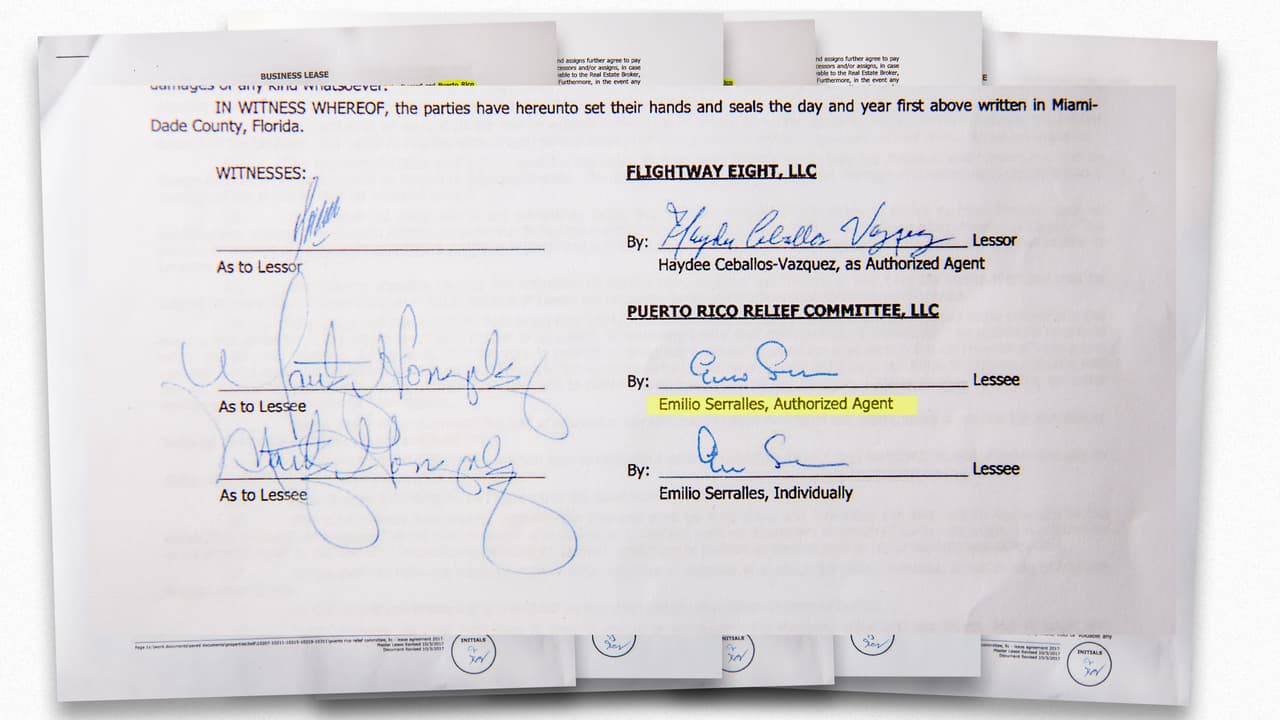 BUSINESS LEASE
nd assigns further agree to pay
cessors and/or assigns, in case
able to the Real Estate Broker,
Furthermore, in the event any
nd assigns further agree to pay
cessors and/or assigns, in case
able to the Real Estate Broker,
Furthermore, in the event any
Puerto Rico
damages of any kind whatsoever.
IN WITNESS WHEREOF, the parties have hereunto set their hands and seals the day and year first above written in Miami-
Dade County, Florida.
WITNESSES:
FLIGHTWAY EIGHT, LLC
By: Haydee Ceballos Vazquez Lessor
As to Lessor
Haydee Ceballos-Vazquez, as Authorized Agent
PUERTO RICO RELIEF COMMITTEE, LLC
By: Lessee
As to Lessee
Emilio Serralles, Authorized Agent
By: Lessee
As to Lessee
Emilio Serralles, Individually
Master Lease Revised 10/3/2017
Document Revised 10/3/2017
INITIALS
INITIALS
Master Lease Revised 10/3/2017
Document Revised 10/3/2017
INITIALS